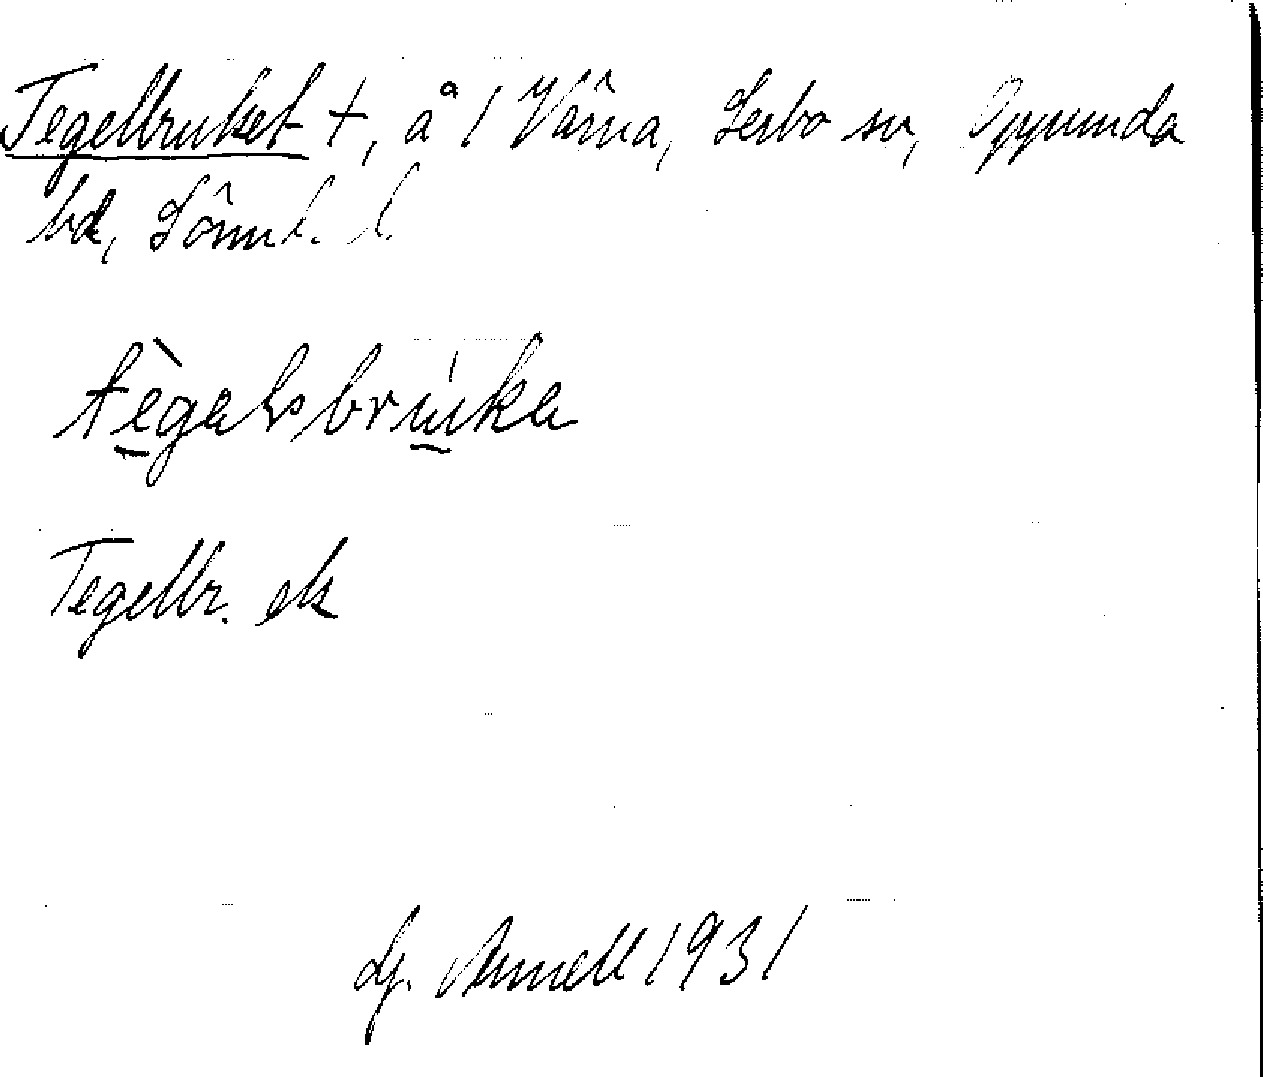 Tegelbruket +, å 1 Värna, Lerbo sn, Oppunda
hd, Sörml. l.
tègəlsbrùka
Tegelbr. ek
Lg. Arnell 1931